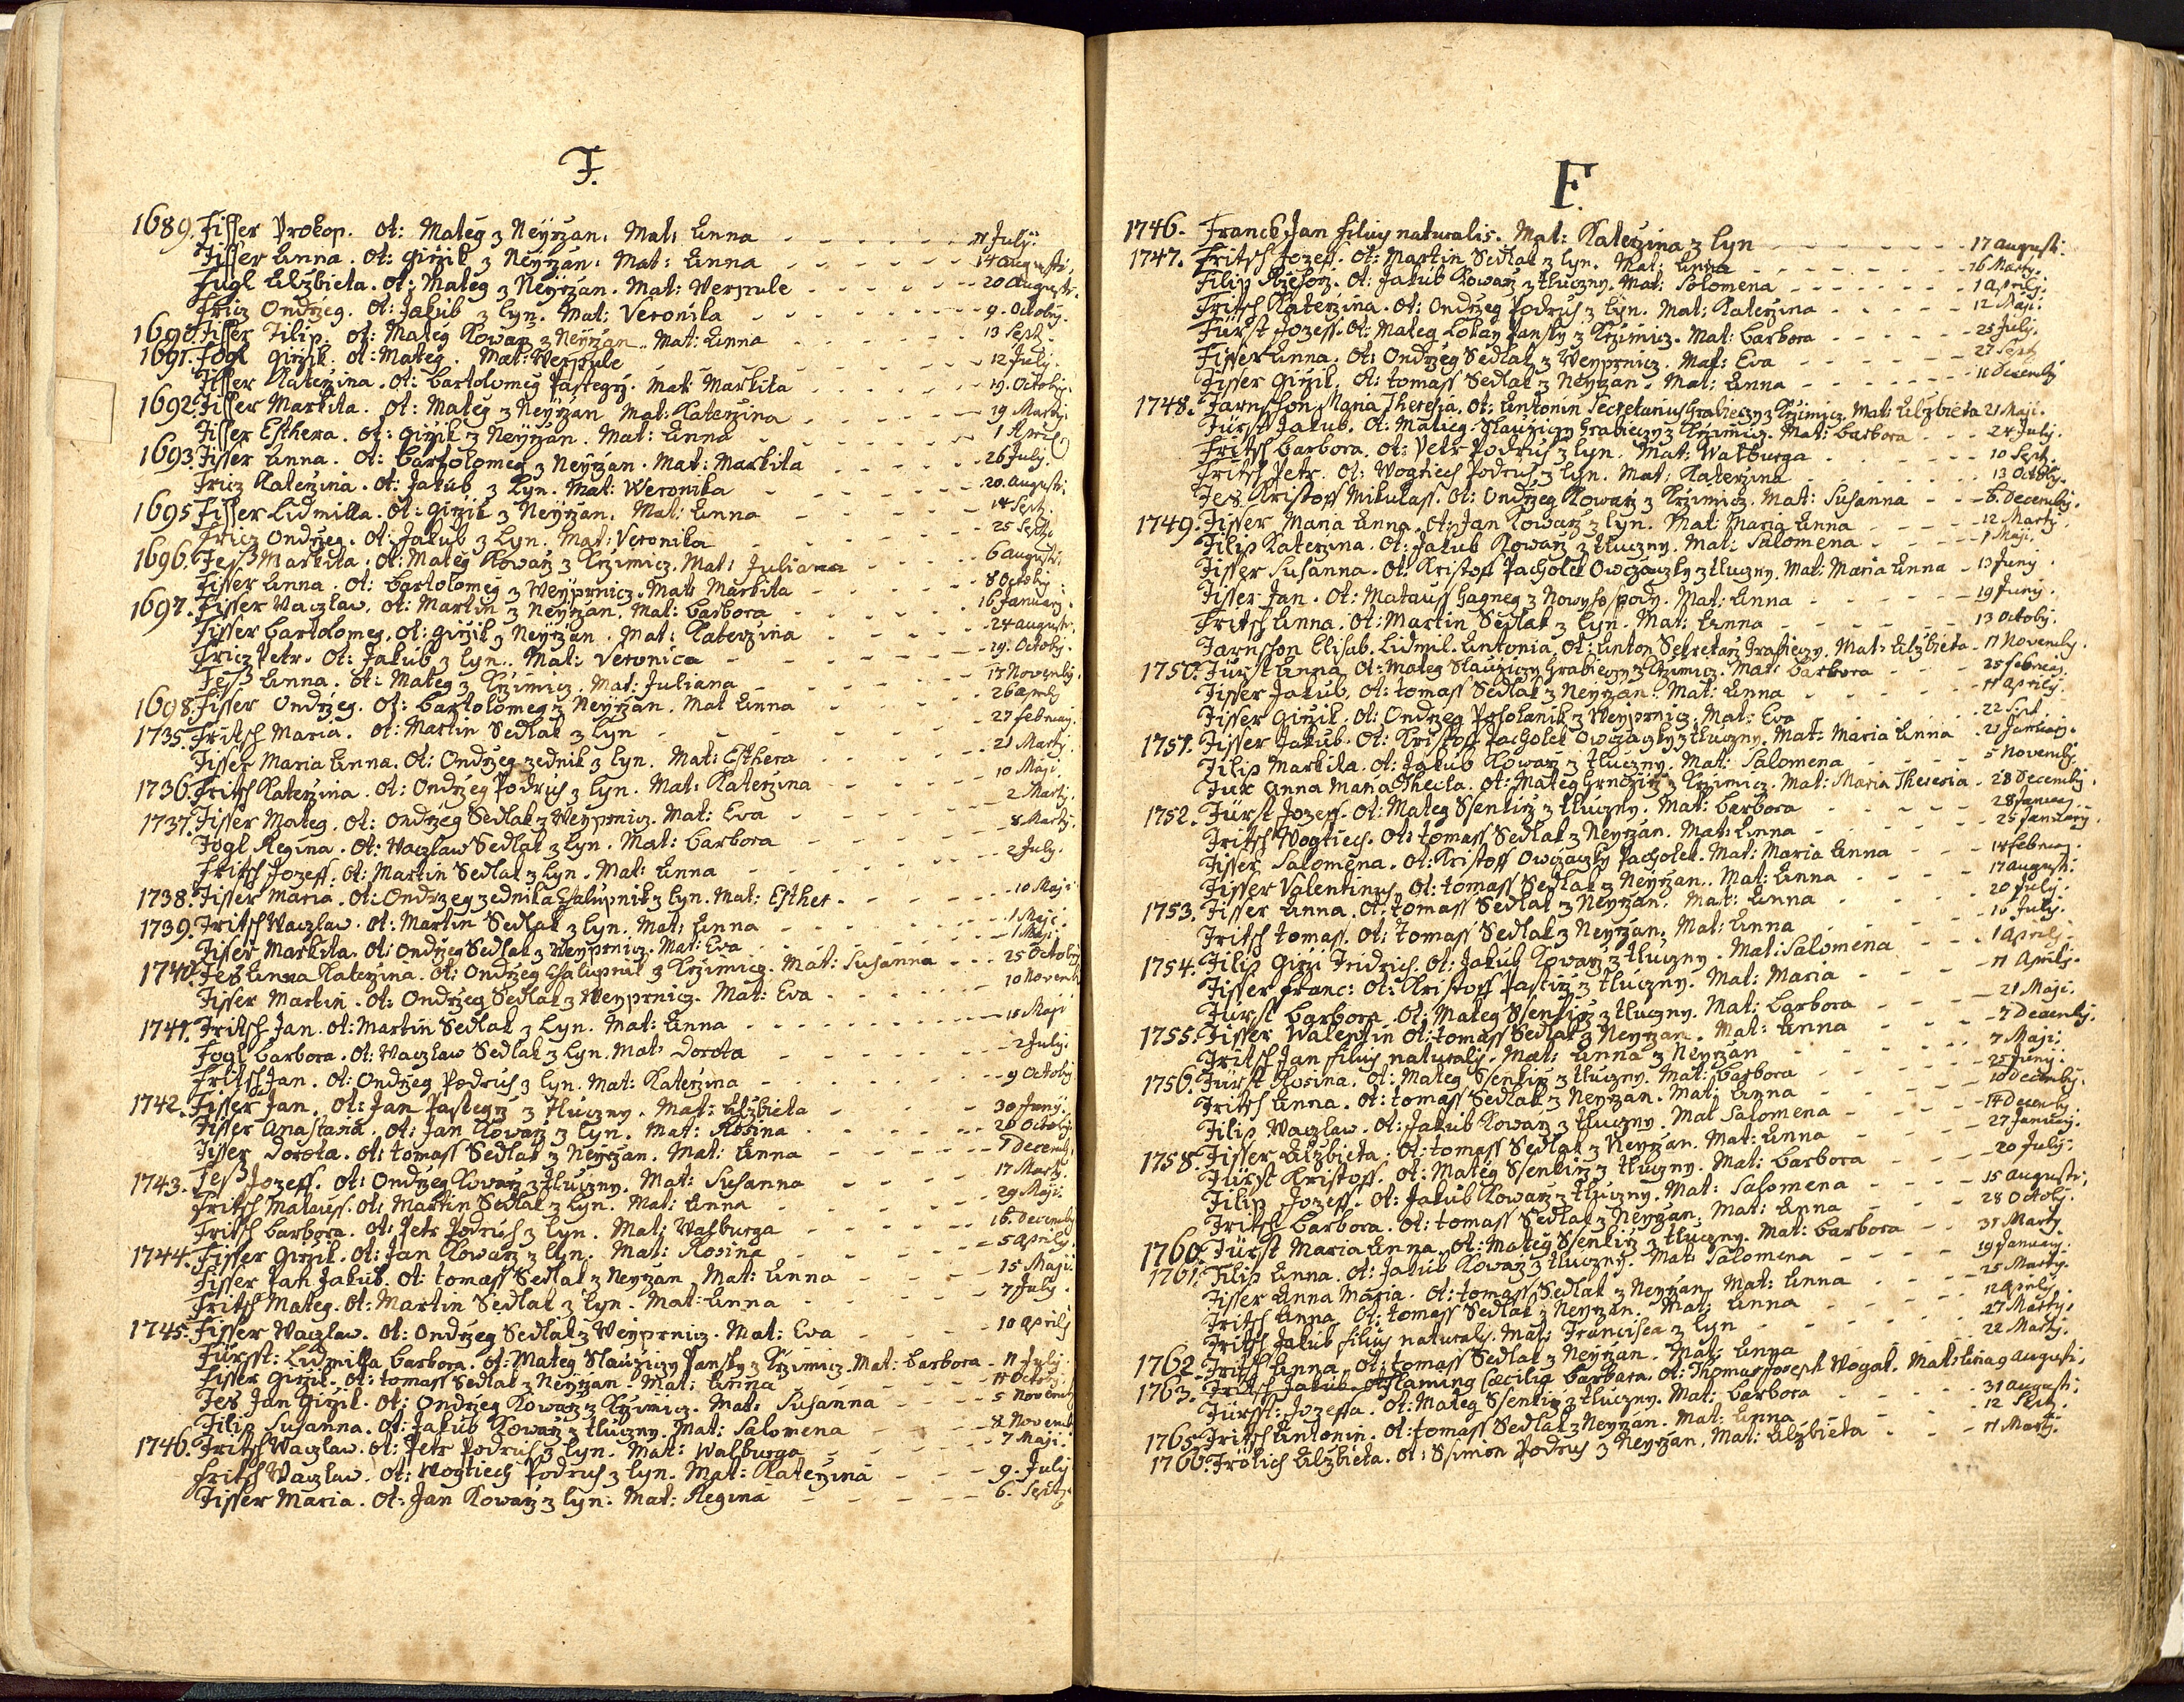 F.
1689. Fisser Prokop. Ot: Mateg z Neyrzan. Mat: Anna - - - 11 July.
Fisser Anna. Ot: Girzik z Neyrzan. Mat: Anna - - - 14 augusti.
Fugl Alzbieta. Ot: Mateg z Neyrzan. Mat: Werpule - - - 20 Augusti.
Fricz Ondrzeg. Ot: Jakub z Lyn. Mat: Veronika - - - 9. Octobr.
1690. Fisser Filip. Ot: Mateg Kowarz z Neyrzan. Mat: Anna - - - 13 Sept.
1691. Fogl Girzik. Ot: Mateg. Mat: Werpule - - - 12 July.
Fisser Katerzina. Ot: bartolomeg Pastegrz. Mat: Markita - - - 19. Octobr.
1692. Fisser Markita. Ot: Mateg z Neyrzan Mat: Katerzina - - - 19 Martj
Fisser Esthera. Ot: Girzik z Neyrzan. Mat: Anna - - - 1 April
1693. Fisser Anna. Ot: bartolomeg z Neyrzan. Mat: Markita - - - 26 July.
Fricz Katerzina. Ot: Jakub z Lyn. Mat: Weronika - - - 20 augusti
1695 Fisser Lidmilla. Ot: Girzik z Neyrzan. Mat: Anna - - - 14 Sept.
Fricz Ondrzeg. Ot: Jakub z Lyn. Mat: Veronika - - - 25 Sept.
1696. Feß Markita. Ot: Mateg Kowarz z Krzimicz. Mat: Juliana - - - 6 augusti
Fisser Anna. Ot: bartolomeg z Weyprnicz. Mat: Markita - - - 8 Octobr
1697. Fisser Waczlaw. Ot: Martin z Neyrzan. Mat: barbora - - - 16 January.
Fisser bartolomeg. Ot: Girzik z Neyrzan. Mat: Katerzina - - - 24 augusti.
Fricz Petr. Ot: Jakub z Lyn. Mat: Veronica - - - 29. Octobr.
Feß Anna. Ot: Mateg z Krzimicz. Mat: Juliana - - - 15 Novembr.
1698. Fisser Ondrzeg. Ot: bartolomeg z Neyrzan. Mat Anna - - - 26 aprilj
1735. Fritsch Maria. Ot: Martin Sedlak z Lyn - - - 27 februarj.
Fisser Maria Anna. Ot: Ondrzeg zednik z Lyn. Mat: Esthera - - - 21 Martj.
1736. Fritsch Katerzina. Ot: Ondrzeg Podruh z Lyn. Mat: Katerzina - - - 10 Maji.
1737. Fisser Mateg. Ot: Ondrzeg Sedlak z Weyprnicz. Mat: Eva - - - 2 Martj.
Fogl Regina. Ot: Waczlaw Sedlak z Lyn. Mat: barbora - - - 8 Martj.
Fritsch Jozeff. Ot: Martin Sedlak z Lyn. Mat: Anna - - - 2 July.
1738. Fisser Maria. Ot: Ondrzeg zednik a Chalupnik z Lyn. Mat: Esther - - - 10 Maji
1739. Fritsch Waczlaw. Ot: Martin Sedlak z Lyn. Mat: Anna - - - 1 Maji.
Fisser Markita. Ot: Ondrzeg Sedlak z Weyprnicz. Mat: Eva - - - 1 Maji.
1740. Fes Anna Katerzina. Ot: Ondrzeg Chalupnik z Krzimicz. Mat: Susanna - - - 25 Octobr
Fisser Martin. Ot: Ondrzeg Sedlak z Weyprnicz. Mat: Eva - - - 10 Novemb
1741. Fritsch Jan. Ot: Martin Sedlak z Lyn. Mat: Anna - - - 18 Maji
Fogl barbora. Ot: Waczlaw Sedlak z Lyn. Mat: Dorota - - - 2 July.
Fritsch Jan. Ot: Ondrzeg Podruh z Lyn. Mat: Katerzina - - - 9 Octobr
1742. Fisser Jan. Ot: Jan Pastegrz z Tluczny. Mat: Alzbieta - - - 30 Juny.
Fisser Anastasia. Ot: Jan Kowarz z Lyn. Mat: Rosina - - - 20 Octobr
Fisser Dorota. Ot: tomass Sedlak z Neyrzan. Mat: Anna - - - 1 Decemb.
1743. Feß Jozeff. Ot: Ondrzeg Kowarz z Tluczny. Mat: Susanna - - - 17 Martj.
Fritsch Matauss. Ot: Martin Sedlak z Lyn. Mat: Anna - - - 29 Maji.
Fritsch barbora. Ot: Petr Podruh z Lyn. Mat: Walburga - - - 16. Decemb
1744. Fisser Girzik. Ot: Jan Kowarz z Lyn. Mat: Rosina - - - 5 aprilj.
Fisser Jan Jakub. Ot: tomass Sedlak z Neyrzan Mat: Anna - - - 15 Maji.
Fritsch Mateg. Ot: Martin Sedlak z Lyn. Mat: Anna - - - 7 July.
1745. Fisser Waczlaw. Ot: Ondrzeg Sedlak z Weyprnicz. Mat: Eva - - - 10 aprilj
Fürst: Lidmilla barbora. Ot: Mateg Slauziczy Pansky z Krzimicz. Mat: barbora - 11 July.
Fisser Girzik. Ot: tomass Sedlak z Neyrzan. Mat: Anna - - - 11 Octobr.
Fes Jan Girzik. Ot: Ondrzeg Kowarz z Krzimicz. Mat: Susanna - - - 5 Novemb
Filip Susanna. Ot: Jakub Kowarz z tluczny. Mat: Salomena - - - 8 Novemb
1746. Fritsch Waczlaw. Ot: Petr Podruh z Lyn. Mat: Walburga - - - 7 Maji.
Fritsch Waczlaw. Ot: Wogtiech Podruh z Lyn. Mat: Katerzina - - - 9. July
Fisser Maria. Ot: Jan Kowarz z Lyn: Mat: Regina - - - 6. Sept.
F.
1746. Franck Jan filius naturalis. Mat: Katerzina z Lyn - - - 17 augusti.
1747. Fritsch Jozeff. Ot: Martin Sedlak z Lyn. Mat: Anna - - - 16 Martj.
Filip Rzehorz. Ot: Jakub Kowarz z tluczny. Mat: Solomena - - - 1 aprilj.
Fritsch Katerzina. Ot: Ondrzeg Podruh z Lyn. Mat: Katerzina - - - 12 Maji.
Fürst Jozeff. Ot: Mateg Lokay Pansky z Krzimicz. Mat: barbora - - - 28 July.
Fisser Anna. Ot: Ondrzeg Sedlak z Weyprnicz. Mat: Eva - - - 27 Sept
Fisser Girzik. Ot: tomass Sedlak z Neyrzan. Mat: Anna - - - 11 Decembr
1748. Farnsson Maria Theresia. Ot: Antonin Secretarius Grabieczy z Krzimicz. Mat: Alzbieta 21 Maji.
Fürst Jakub. Ot: Mateg Slauziczy Grabieczy z Krzimicz. Mat: barbora - - - 24 July.
Fritsch barbora. Ot: Petr Podruh z Lyn. Mat: Walburga - - - 10 Sept.
Fritsch Petr. Ot: Wogtiech Podruh z Lyn. Mat: Katerzina - - - 13 Octobr.
Fes Kristoff Mikulass. Ot: Ondrzeg Kowarz z Krzimicz. Mat: Susanna - - - 6. Decembr.
1749. Fisser Maria Anna. Ot: Jan Kowarz z Lyn. Mat: Maria Anna - - - 12 Martj.
Filip Katerzina. Ot: Jakub Kowarz z tluczny. Mat: Salomena - - - 1 Maji.
Fisser Susanna. Ot: Kristoff Pacholek Owczaczky z tluczny. Mat: Maria Anna - 13 Juny.
Fisser Jan. Ot: Matauss Hagneg z Nowyhospody. Mat: Anna - - - 19 Juny.
Fritsch Anna. Ot: Martin Sedlak z Lyn. Mat: Anna - - - 13 Octobr.
Farnsson Elisab. Lidmil. Antonia. Ot: Anton Sekretarz Grabieczy. Mat: Alzbieta - 11 Novembr.
1750. Fürst Anna. Ot: Mateg Slauziczy Grabieczy z Krzimicz. Mat: barbora - - - 25 februarj.
Fisser Jakub. Ot: tomass Sedlak z Neyrzan. Mat: Anna - - - 11 aprilj.
Fisser Girzik. Ot: Ondrzeg Poholanik z Weyprnicz. Mat: Eva - - - 22 Sept
1751. Fisser Jakub. Ot: Kristoff Pacholek Owczaczky z tluczny. Mat: Maria Anna - 21 January.
Filip Markita. Ot: Jakub Kowarz z tluczny. Mat: Salomena - - - 5 Novembr.
Fux Anna Maria Thecla. Ot: Mateg Hrnczirz z Krzimicz. Mat: Maria Theresia - 28 Decembr.
1752. Fürst Jozeff. Ot: Mateg Ssenkirz z tluczny. Mat: barbora - - - 28 January.
Fritsch Wogtiech. Ot: tomass Sedlak z Neyrzan. Mat: Anna - - - 25 January.
Fisser Salomena. Ot: Kristoff Owczaczky Pacholek. Mat: Maria Anna - - - 14 februarj.
Fisser Valentinus. Ot: tomass Sedlak z Neyrzan. Mat: Anna - - - 17 augusti.
1753. Fisser Anna. Ot: tomass Sedlak z Neyrzan. Mat: Anna - - - 20 July.
Fritsch tomass. Ot: tomass Sedlak z Neyrzan. Mat: Anna - - - 16 July.
1754. Filip Girzi Fridrich. Ot: Jakub Kowarz z tluczny. Mat: Salomena - - - 1 aprilj.
Fisser franc: Ot: Kristoff Pastirz z tluczny. Mat: Maria - - - 11 Aprilj.
Fürst barbora. Ot: Mateg Ssenkirz z tluczny. Mat: barbora - - - 21 Maji.
1755. Fisser Walentin Ot: tomass Sedlak z Neyrzan. Mat: Anna - - - 7 Decembr.
Fritsch Jan filius naturalis. Mat: Anna z Neyrzan - - - 7 Maji.
1756. Fürst Rosina. Ot: Mateg Ssenkirz z tluczny. Mat: barbora - - - 25 Juny.
Fritsch Anna. Ot: tomass Sedlak z Neyrzan. Mat: Anna - - - 10 Decembr.
Filip Waczlaw. Ot: Jakub Kowarz z tluczny. Mat Salomena - - - 14 Decembr
1758. Fisser Alzbieta. Ot: tomass Sedlak z Neyrzan. Mat: Anna - - - 27 January.
Fürst Kristoff. Ot: Mateg Ssenkirz z tluczny. Mat: barbora - - - 20 July.
Filip Jozeff. Ot: Jakub Kowarz z tluczny. Mat: Salomena - - - 15 augusti.
Fritsch barbora. Ot: tomass Sedlak z Neyrzan. Mat: Anna - - - 28 Octobr.
1760. Fürst Maria Anna. Ot: Mateg Ssenkirz z tluczny. Mat: barbora - - - 31 Martj.
1761. Filip Anna. Ot: Jakub Kowarz z tluczny. Mat: Salomena - - - 19 January.
Fisser Anna Maria. Ot: tomass Sedlak z Neyrzan. Mat: Anna - - - 25 Martj.
Fritsch Anna. Ot: tomass Sedlak z Neyrzan. Mat: Anna - - - 12 aprilj.
Fritsch Jakub filius naturalis. Mat: Francisca z Lyn - - - 27 Martj.
1762. Fritsch Anna. Ot: tomass Sedlak z Neyrzan. Mat: Anna - - - 22 Martj.
1763. Fritsch Jakub. Flaming Caecilia barbara. Ot: Thomas Joseph Wogak. Mat: Anna 9 augusti.
Fürsst: Jozeffa. Ot: Mateg Ssenkirz z tluczny. Mat: barbora - - - 31 augusti.
1765. Fritsch Antonin. Ot: tomass Sedlak z Neyrzan. Mat: Anna - - - 12 Sept.
1766. Frölich Alzbieta. Ot: Ssimon Podruh z Neyrzan. Mat: Alzbieta - - - 11 Martj.